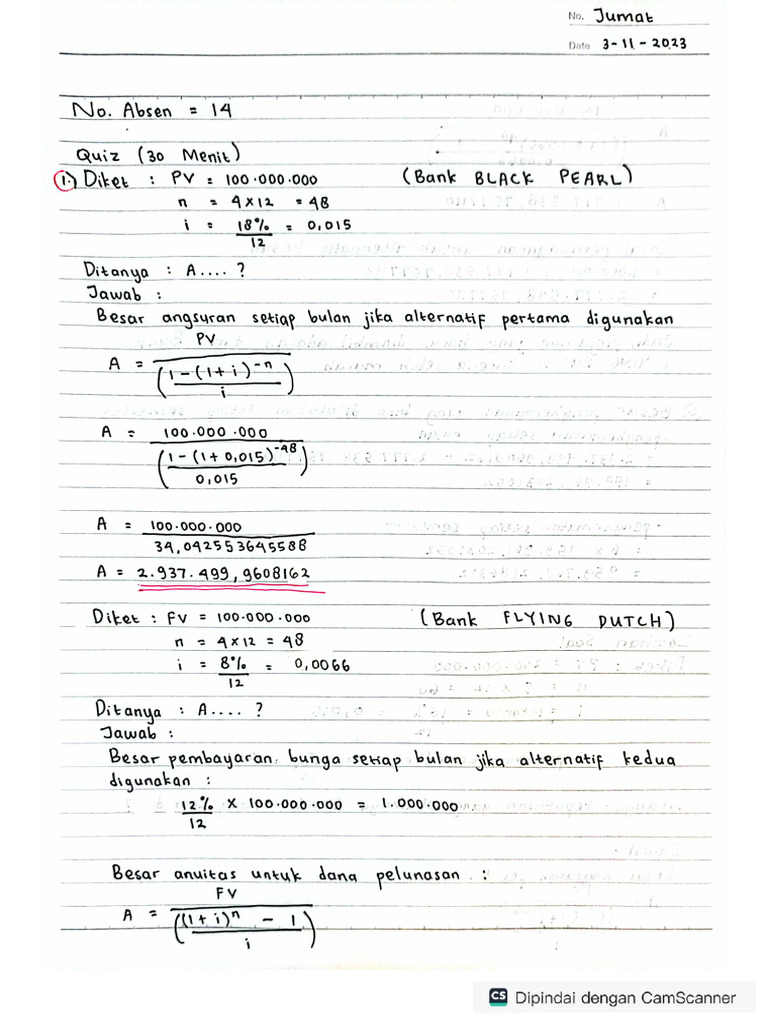 No. Jumat
Date 3-11-2023
No. Absen = 14
Quiz (30 Menit)
1.) Diket : PV = 100.000.000 (Bank BLACK PEARL)
n = 4 x 12 = 48
i = 18% = 0,015
12
Ditanya : A.... ?
Jawab :
Besar angsuran setiap bulan jika alternatif pertama digunakan
PV
A =
(1-(1+i)^-n)
i
A = 100.000.000
(1-(1+0,015)^-48)
0,015
A = 100.000.000
34,042553645588
A = 2.937.499,9608162
Diket : FV = 100.000.000 (Bank FLYING DUTCH)
n = 4 x 12 = 48
i = 8% = 0,0066
12
Ditanya : A.... ?
Jawab :
Besar pembayaran, bunga setiap bulan jika alternatif kedua
digunakan :
12% x 100.000.000 = 1.000.000
12
Besar anuitas untuk dana pelunasan :
FV
A =
((1+i)^n - 1)
i
CS Dipindai dengan CamScanner